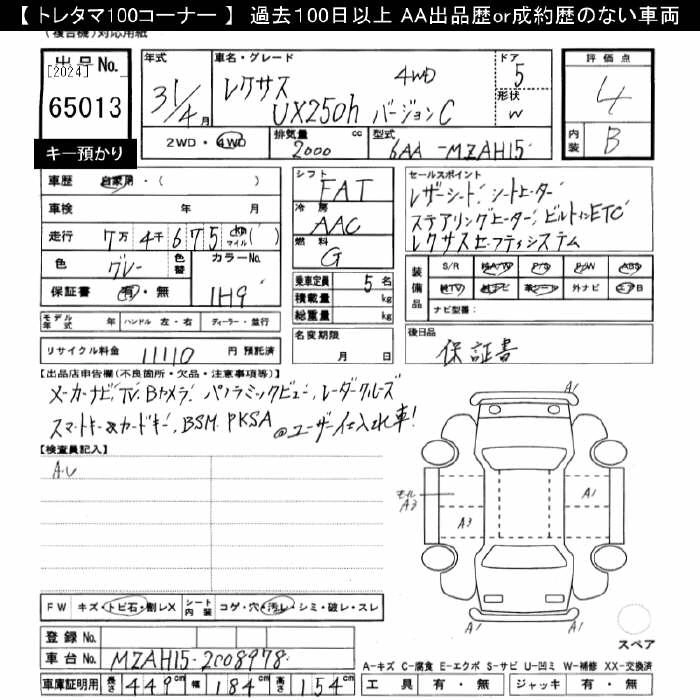 【 トレタマ100コーナー 】 過去100日以上 AA出品歴or成約歴のない車両
(複合機)対応用紙
出品No.
[2024]
65013
キー預かり
年式 31/4月
車名・グレード レクサス 4WD
UX250h バージョンC
ドア 5
形状 W
2WD・4WD
排気量 2000 cc
型式 6AA-MZAH15
評価点 4
内装 B
車歴 自家用・( )
車検 年 月
走行 7万4千675 km マイル ( )
色 グレー 色替 カラーNo. 1H9
保証書 有・無
モデル年式 年 ハンドル 左・右 ディーラー・並行
リサイクル料金 11110 円 預託済
シフト FAT
冷房 AAC
燃料 G
乗車定員 5 名
積載量 kg
総重量 kg
名変期限
月 日
セールスポイント
レザーシート、シートヒーター、
ステアリングヒーター、ビルトインETC
レクサスセーフティシステム
装備品
S/R A/W P/S P/W ABS
TV ナビ 革シート 外ナビ エアB
ナビ型番:
後日品
保証書
【出品店申告欄(不良箇所・欠品・注意事項等)】
メーカーナビ、TV、Bカメラ、パノラミックビュー、レーダークルーズ
スマートキー&カードキー、BSM、PKSA @ユーザー仕入れ車!
【検査員記入】
AU
A1
モル A3
A1
A3
A1 A1
スペア
FW キズ・トビ石・割レX シート内装 コゲ・穴・汚レ・シミ・破レ・スレ
登録 No.
車台 No. MZAH15-2008978
A-キズ C-腐食 E-エクボ S-サビ U-凹ミ W-補修 XX-交換済
車庫証明用 長さ 449cm 幅 184cm 高さ 154cm
工具 有・無 ジャッキ 有・無